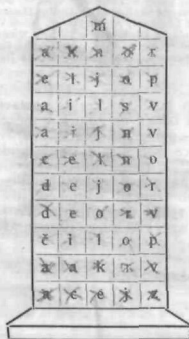 m
a k n o r
e t j a p
a i l s v
a i j n v
c e l n o
d e j o r
d e o r v
č i l o p
a a k r v
n c e j z